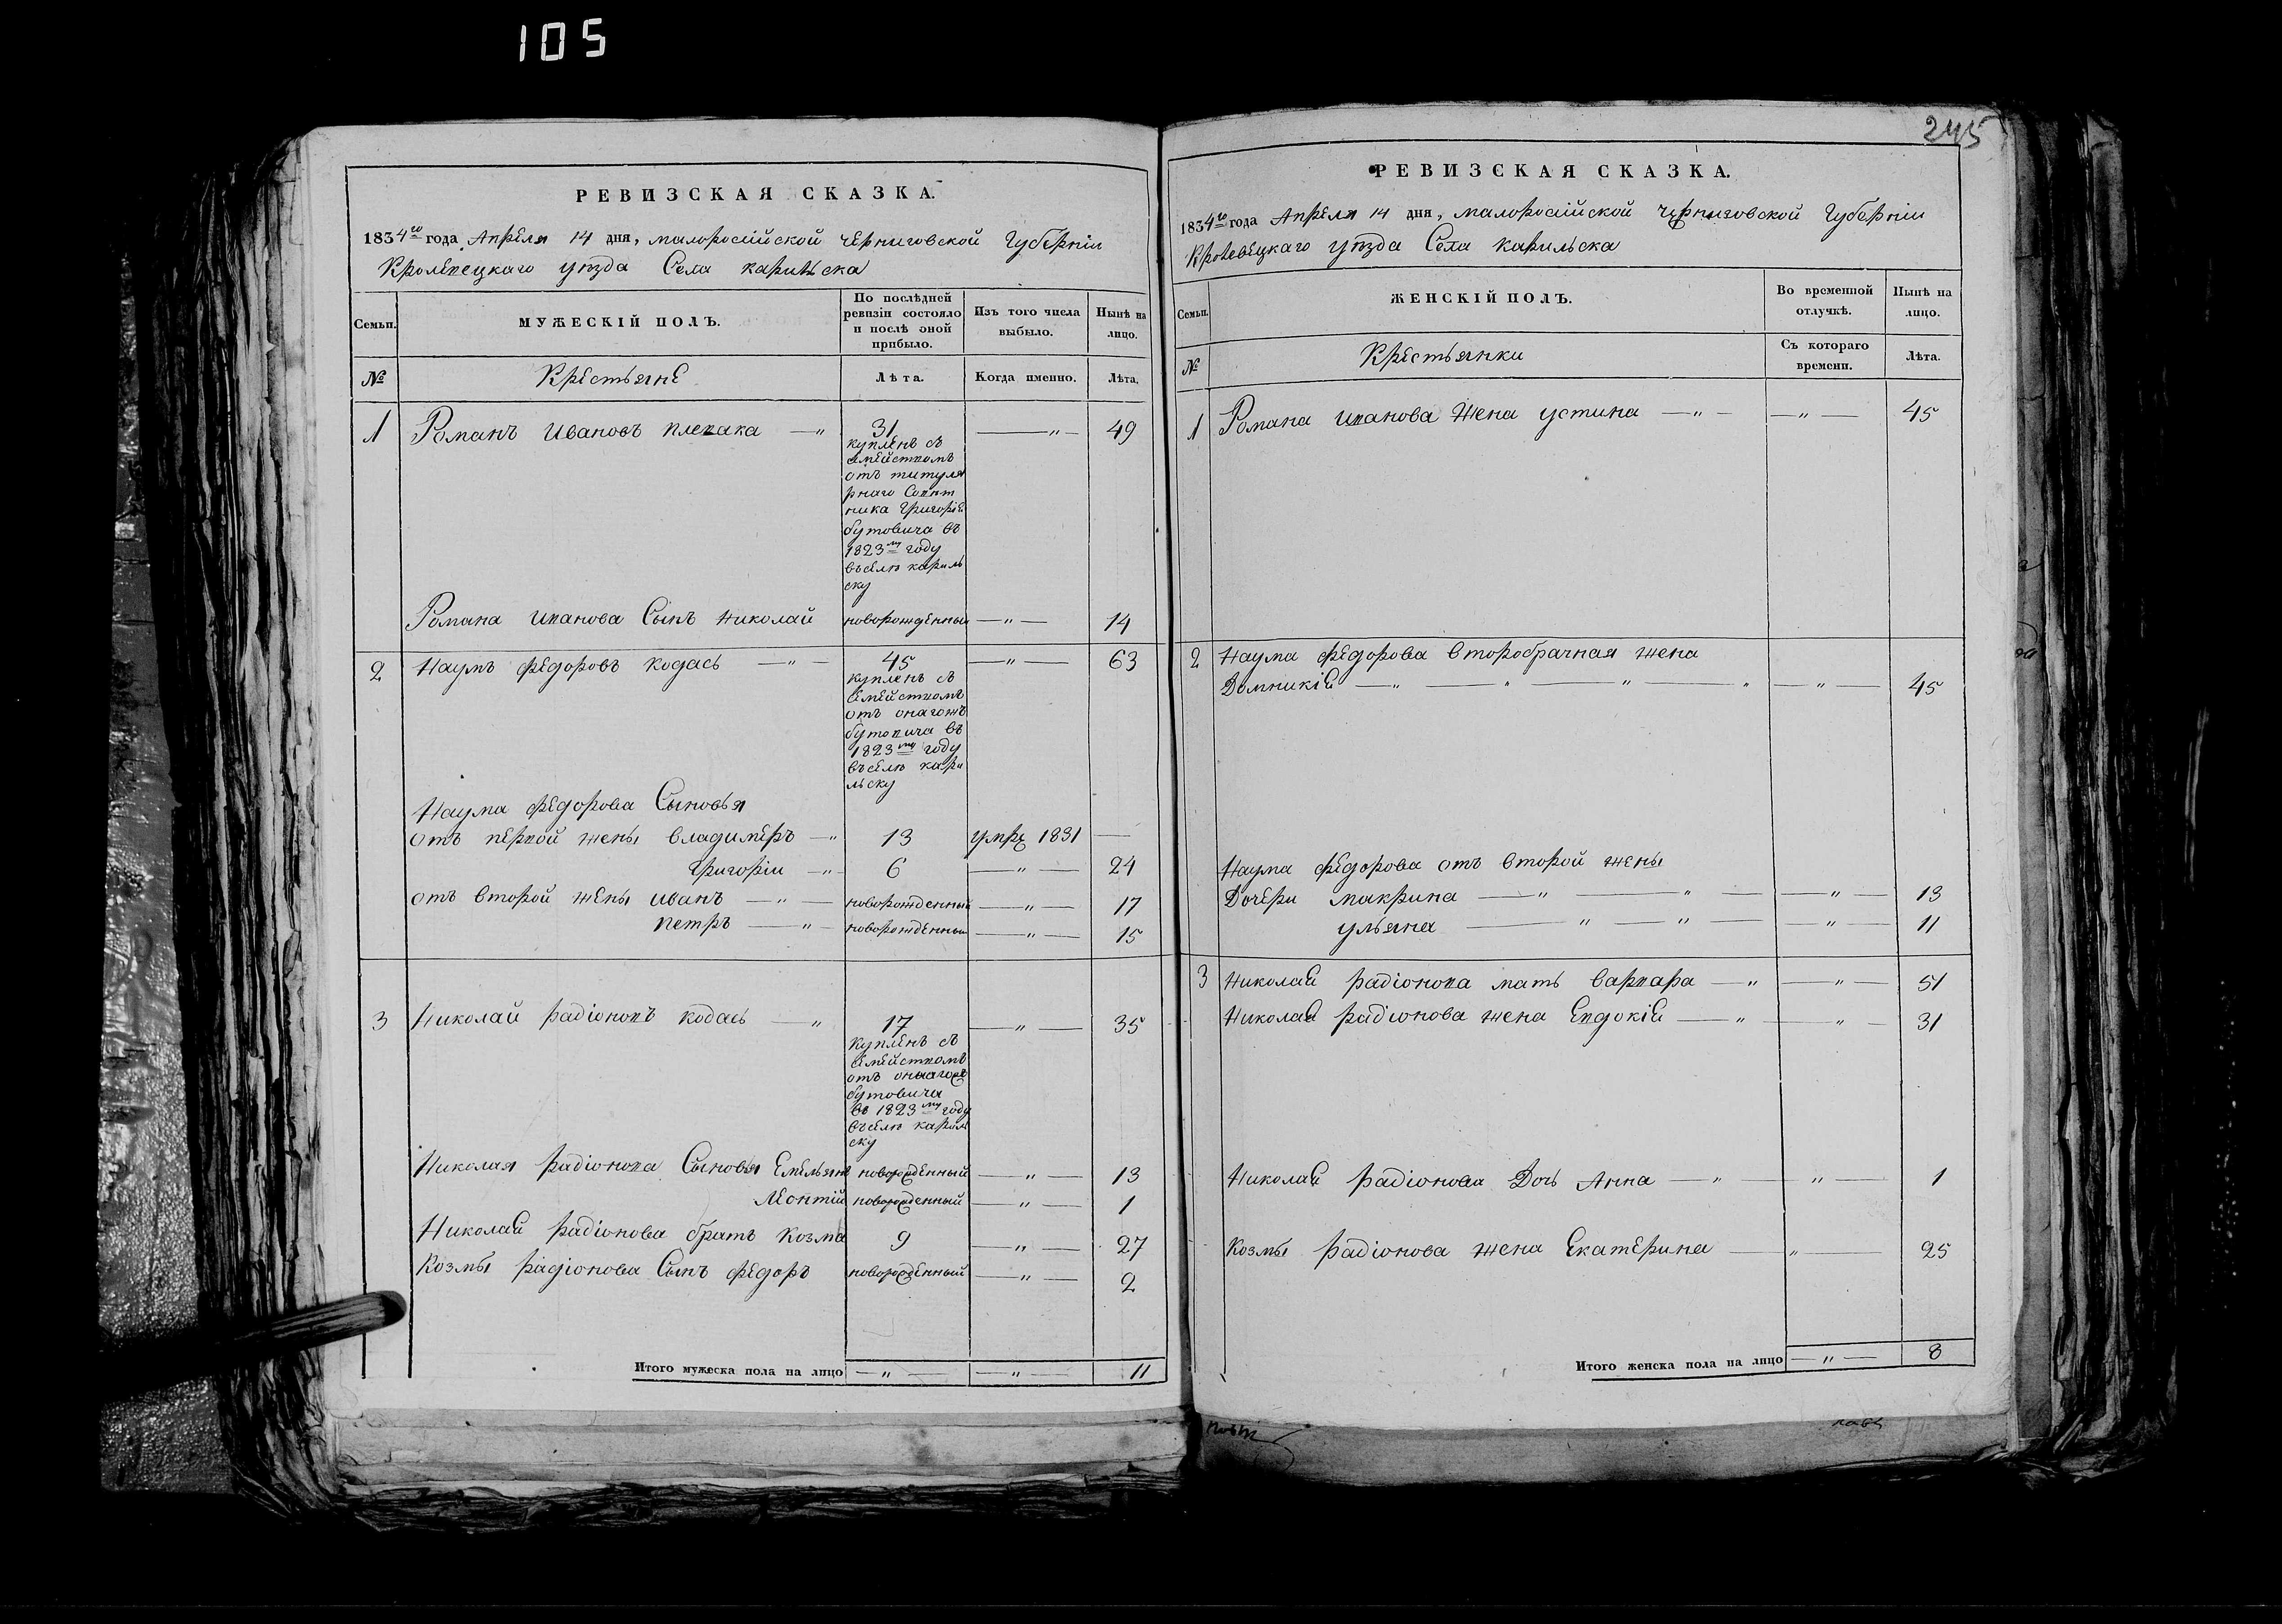 105
РЕВИЗСКАЯ СКАЗКА.
1834го года Апреля 14 дня, малоросійской черниговской Губерніи
Кролевецкаго уѣзда Села карильска
Семьи.
МУЖЕСКІЙ ПОЛЪ.
По послѣдней
ревизіи состояло
и послѣ оной
прибыло.
Изъ того числа
выбыло.
Нынѣ на
лицо.
№
Крестьяне
Лѣта.
Когда именно.
Лѣта,
1 Романъ Ивановъ плевака — " 31 — " — 49
купленъ съ
семействомъ
отъ титуля
рнаго Совѣт
ника Григорія
бутовича въ
1823му году
въселѣ кариль
ску
Романа Иванова Сынъ Николай новорожденный — " — 14
2 Наумъ федоровъ кодась — " — 45 — " — 63
купленъ съ
семействомъ
отъ онагожъ
бутовича въ
1823му году
въселѣ кари
льску
Наума федорова Сыновья
отъ первой жены владимеръ — " 13 умре 1831 —
Григорій — " — 6 — " — 24
отъ второй жены иванъ — " — новорожденный — " — 17
петръ — " — новорожденный — " — 15
3 Николай радіоновъ кодась — " 17 — " — 35
купленъ съ
семействомъ
отъ онагожъ
бутовича
въ 1823му году
въселѣ кариль
ску
Николая радіонова Сыновья Емельянъ новорожденный — " — 13
Леонтій новорожденный — " — 1
Николая радіонова братъ козма 9 — " — 27
Козмы радіонова Сынъ федоръ новорожденный — " — 2
Итого мужеска пола на лицо — " — — " — 11
245
РЕВИЗСКАЯ СКАЗКА.
1834го года Апреля 14 дня, малоросійской черниговской Губерніи
Кролевецкаго уѣзда Села карильска
Семьи.
ЖЕНСКІЙ ПОЛЪ.
Во временной
отлучкѣ.
Нынѣ на
лицо.
№
Крестьянки
Съ котораго
времени.
Лѣта.
1 Романа иванова жена устина — " — — " — 45
2 Наума федорова второбрачная жена
Домникія — " — " — " — " — " — 45
Наума федорова отъ второй жены
Дочери макрина — " — " — — " — 13
ульяна — " — " — — " — 11
3 Николая радіонова мать варвара — " — " — 51
Николая радіонова жена Евдокія — " — " — 31
Николая радіонова Дочь Анна — " — " — 1
Козмы радіонова жена Екатерина — " — 25
Итого женска пола на лицо — " — 8